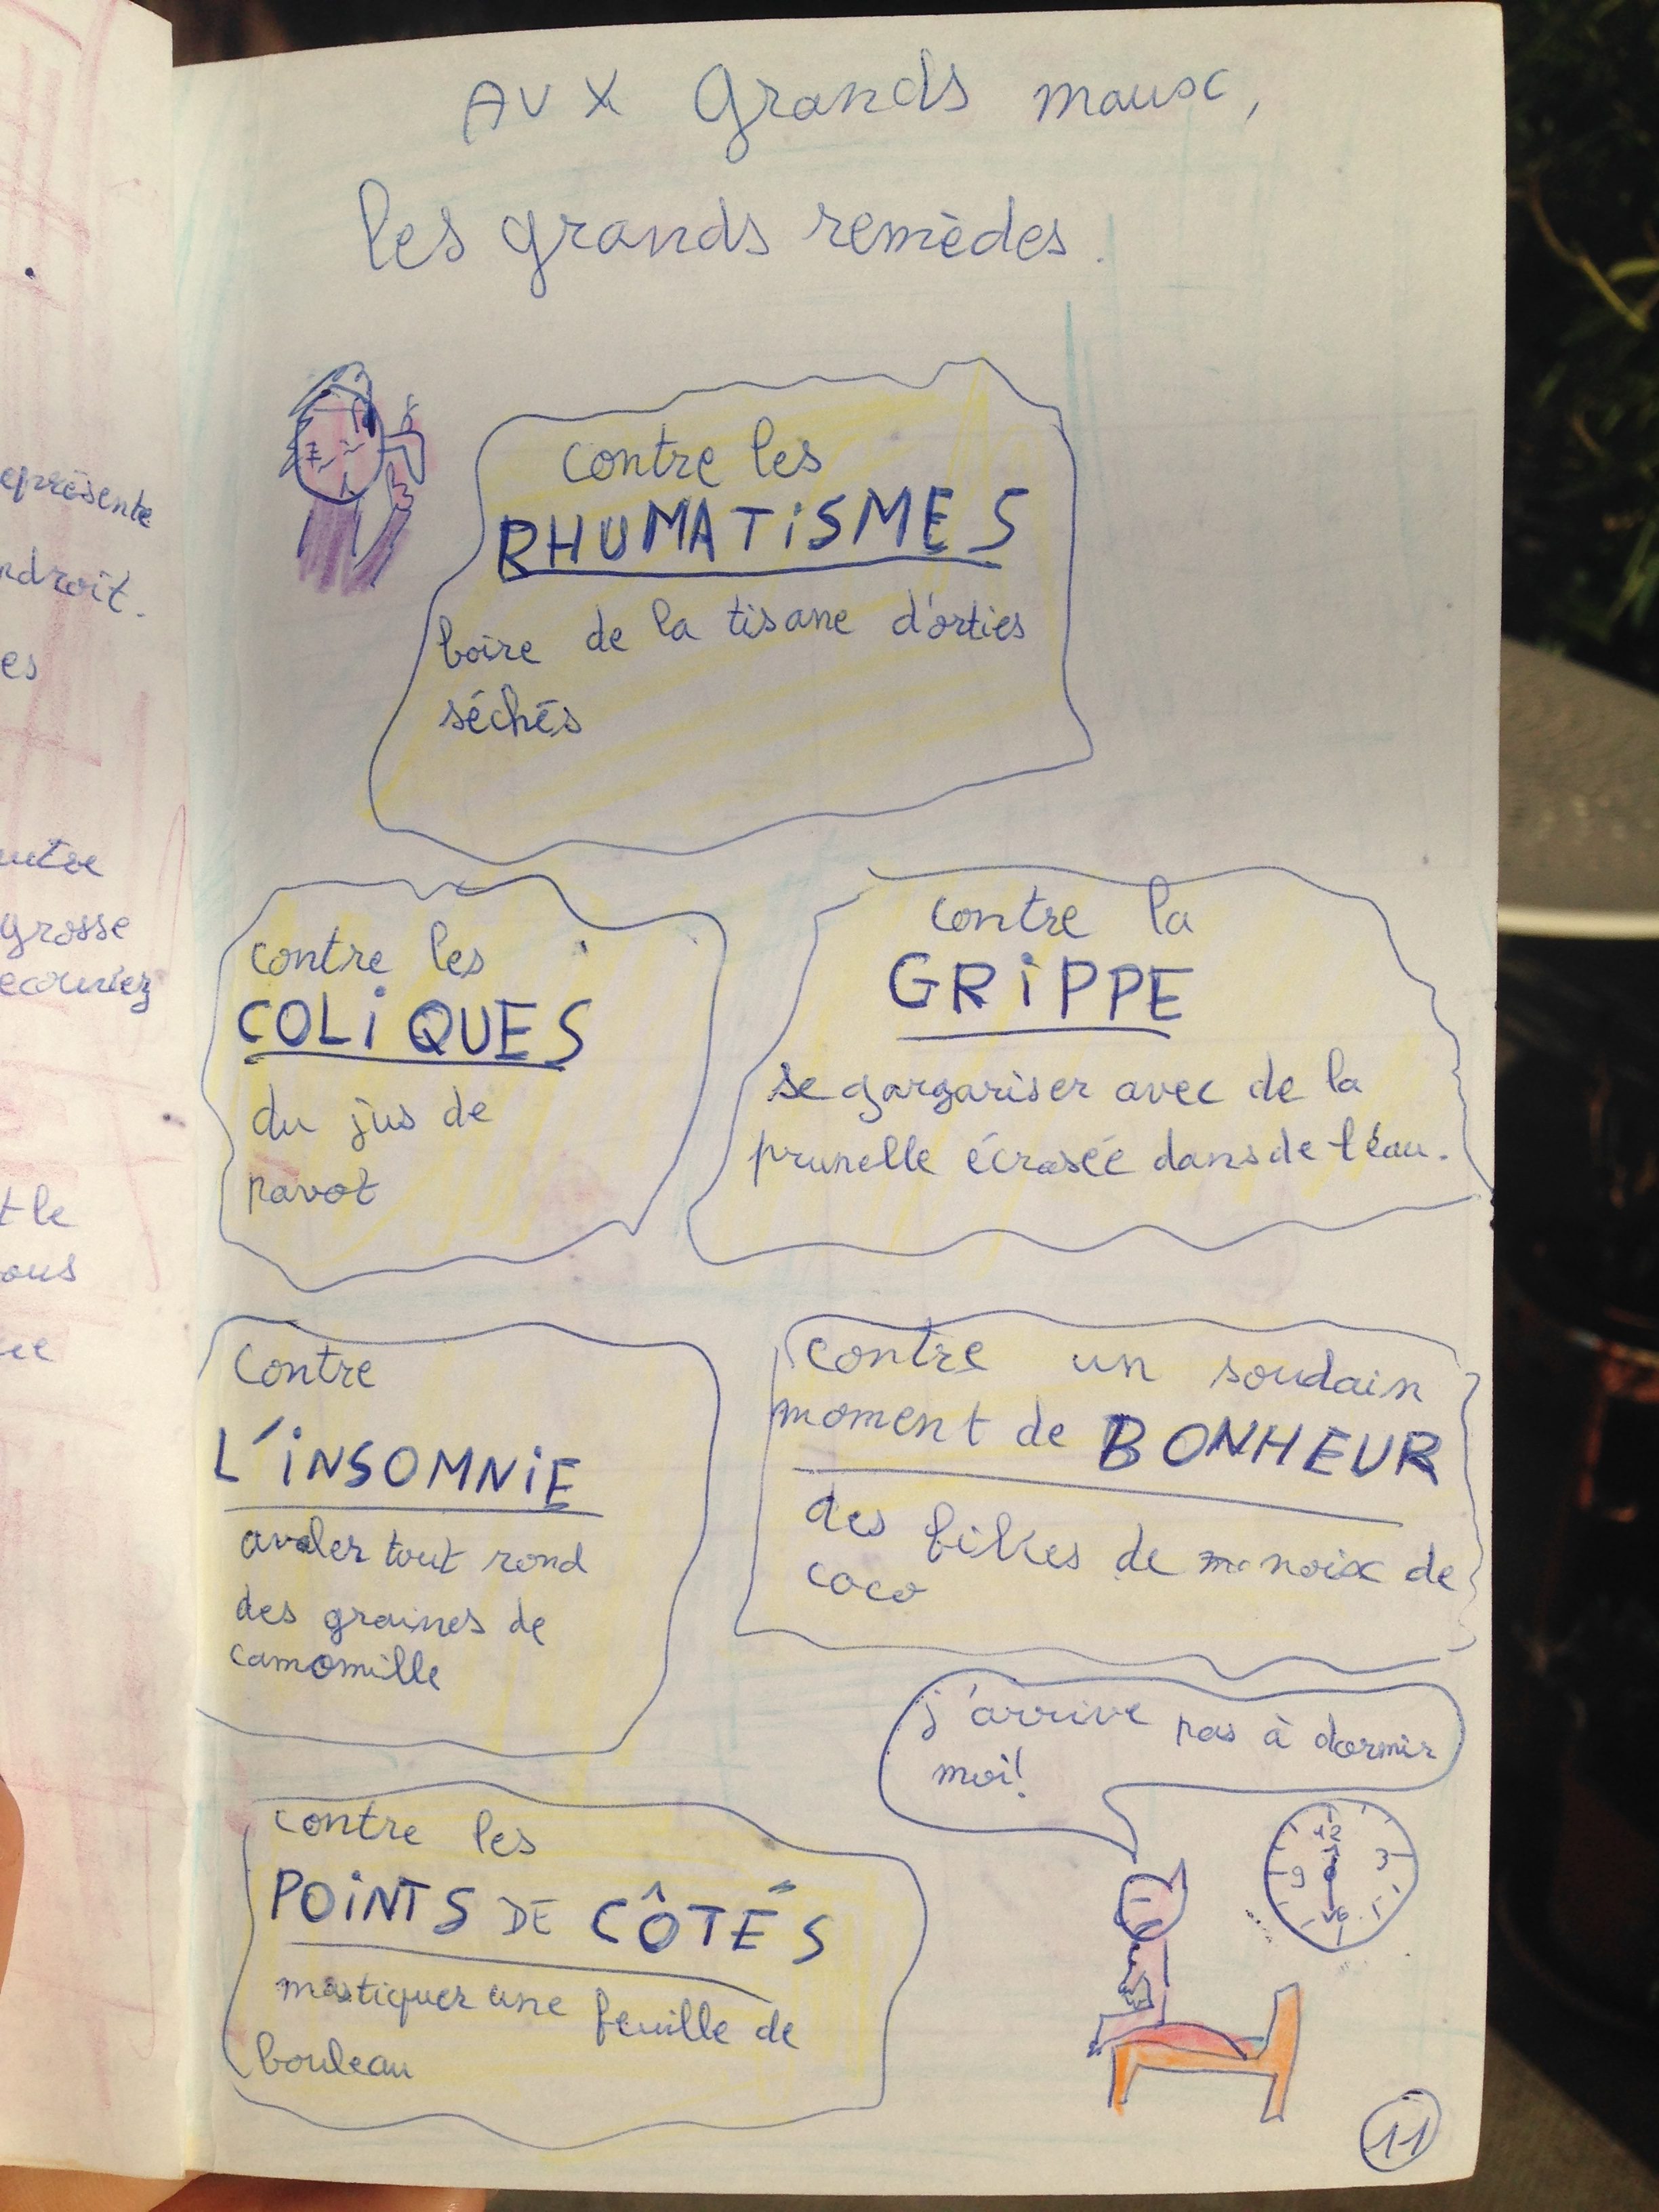 AUX grands maux,
les grands remèdes.
contre les
RHUMATiSMES
boire de la tisane d'orties
séchés
contre les
COLiQUES
du jus de
pavot
contre la
GRiPPE
se gargariser avec de la
prunelle écrasée dans de l'eau.
contre
L'iNSOMNiE
avaler tout rond
des graines de
camomille
contre un soudain
moment de BONHEUR
des filies de noix de
coco
j'arrive pas à dormir
moi!
12
9 3
6
contre les
POiNTS DE CÔTÉS
mastiquer une feuille de
bouleau
11
eprésente
ndroit.
es
grosse
t le
ous